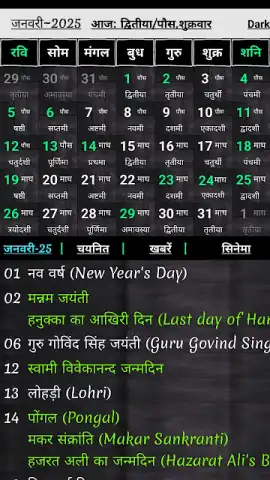 जनवरी~2025 आज: द्वितीया/पौस,शुक्रवार Dark
रवि सोम मंगल बुध गुरु शुक्र शनि
29 पौस 30 पौस 31 पौस 1 पौस 2 पौस 3 पौस 4 पौस
तृतीया अमावस्या पंचमी द्वितीया तृतीया चतुर्थी पंचमी
5 पौस 6 पौस 7 पौस 8 पौस 9 पौस 10 पौस 11 पौस
षष्ठी सप्तमी अष्टमी नवमी दशमी एकादशी द्वादशी
12 पौस 13 पौस 14 माघ 15 माघ 16 माघ 17 माघ 18 माघ
चतुर्दशी पूर्णिमा प्रथमा द्वितीया तृतीया चतुर्थी पंचमी
19 माघ 20 माघ 21 माघ 22 माघ 23 माघ 24 माघ 25 माघ
षष्ठी सप्तमी अष्टमी नवमी दशमी एकादशी द्वादशी
26 माघ 27 माघ 28 माघ 29 माघ 30 माघ 31 माघ 1 माघ
त्रयोदशी चतुर्दशी पूर्णिमा अमावस्या द्वितीया तृतीया तृतीया
जनवरी-25 | चयनित | खबरें | सिनेमा
01 नव वर्ष (New Year's Day)
02 मन्नम जयंती
हनुक्का का आखिरी दिन (Last day of Han
06 गुरु गोविंद सिंह जयंती (Guru Govind Sing
12 स्वामी विवेकानन्द जन्मदिन
13 लोहड़ी (Lohri)
14 पोंगल (Pongal)
मकर संक्रांति (Makar Sankranti)
हजरत अली का जन्मदिन (Hazarat Ali's B